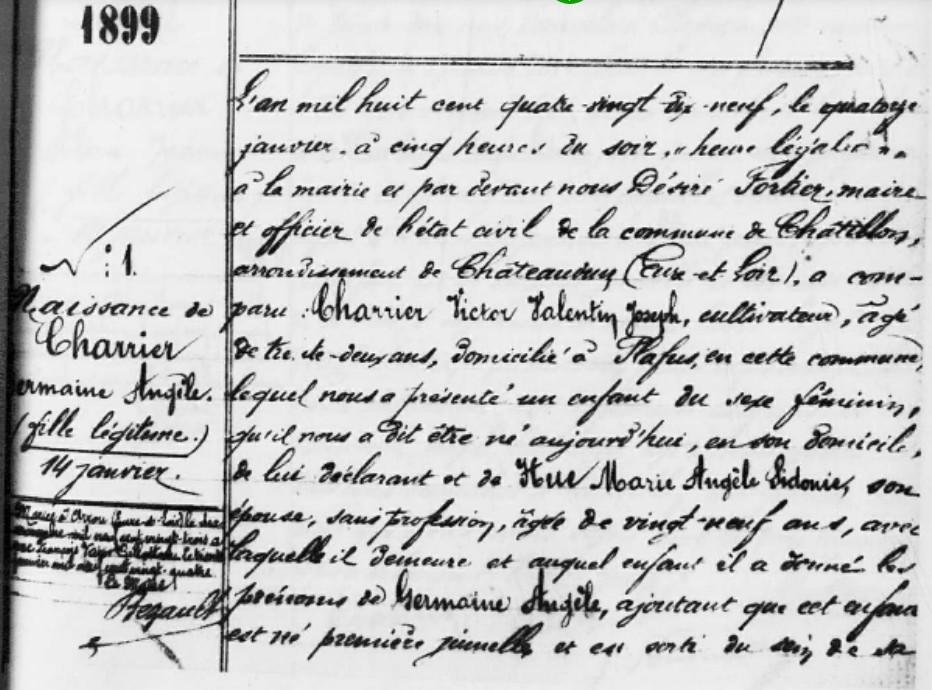 1899
N° : 1.
Naissance de
Charrier
Germaine Angèle.
(fille légitime.)
14 janvier.
Le Maire
L'an mil huit cent quatre-vingt-dix-neuf, le quatorze
janvier, à cinq heures du soir, « heure légale »,
à la mairie et par devant nous Désiré Fortier, maire
et officier de l'état civil de la commune de Châtillon,
arrondissement de Châteaudun, (Eure-et-Loir), a com-
paru : Charrier Victor Valentin Joseph, cultivateur, âgé
de trente-deux ans, domicilié à Plafus, en cette commune,
lequel nous a présenté un enfant du sexe féminin,
qu'il nous a dit être né aujourd'hui, en son domicile,
de lui déclarant et de Hue Marie Angèle Sidonie, son
épouse, sans profession, âgée de vingt-neuf ans, avec
laquelle il demeure et auquel enfant il a donné les
prénoms de Germaine Angèle, ajoutant que cet enfant
est né première jumelle, et est sorti du sein de sa